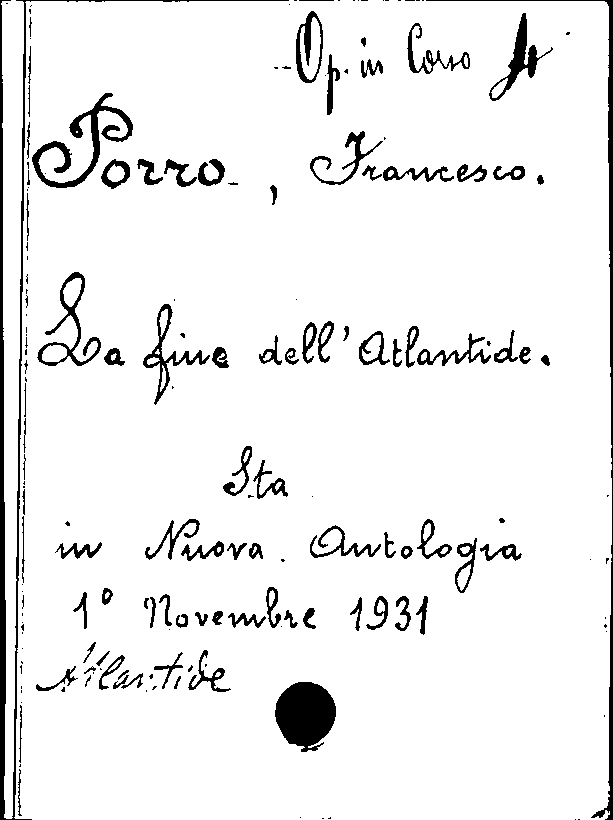 Op. in Corso 4
Porro, Francesco.
La fine dell'Atlantide.
Sta
in Nuova Antologia
1° Novembre 1931
Atlantide